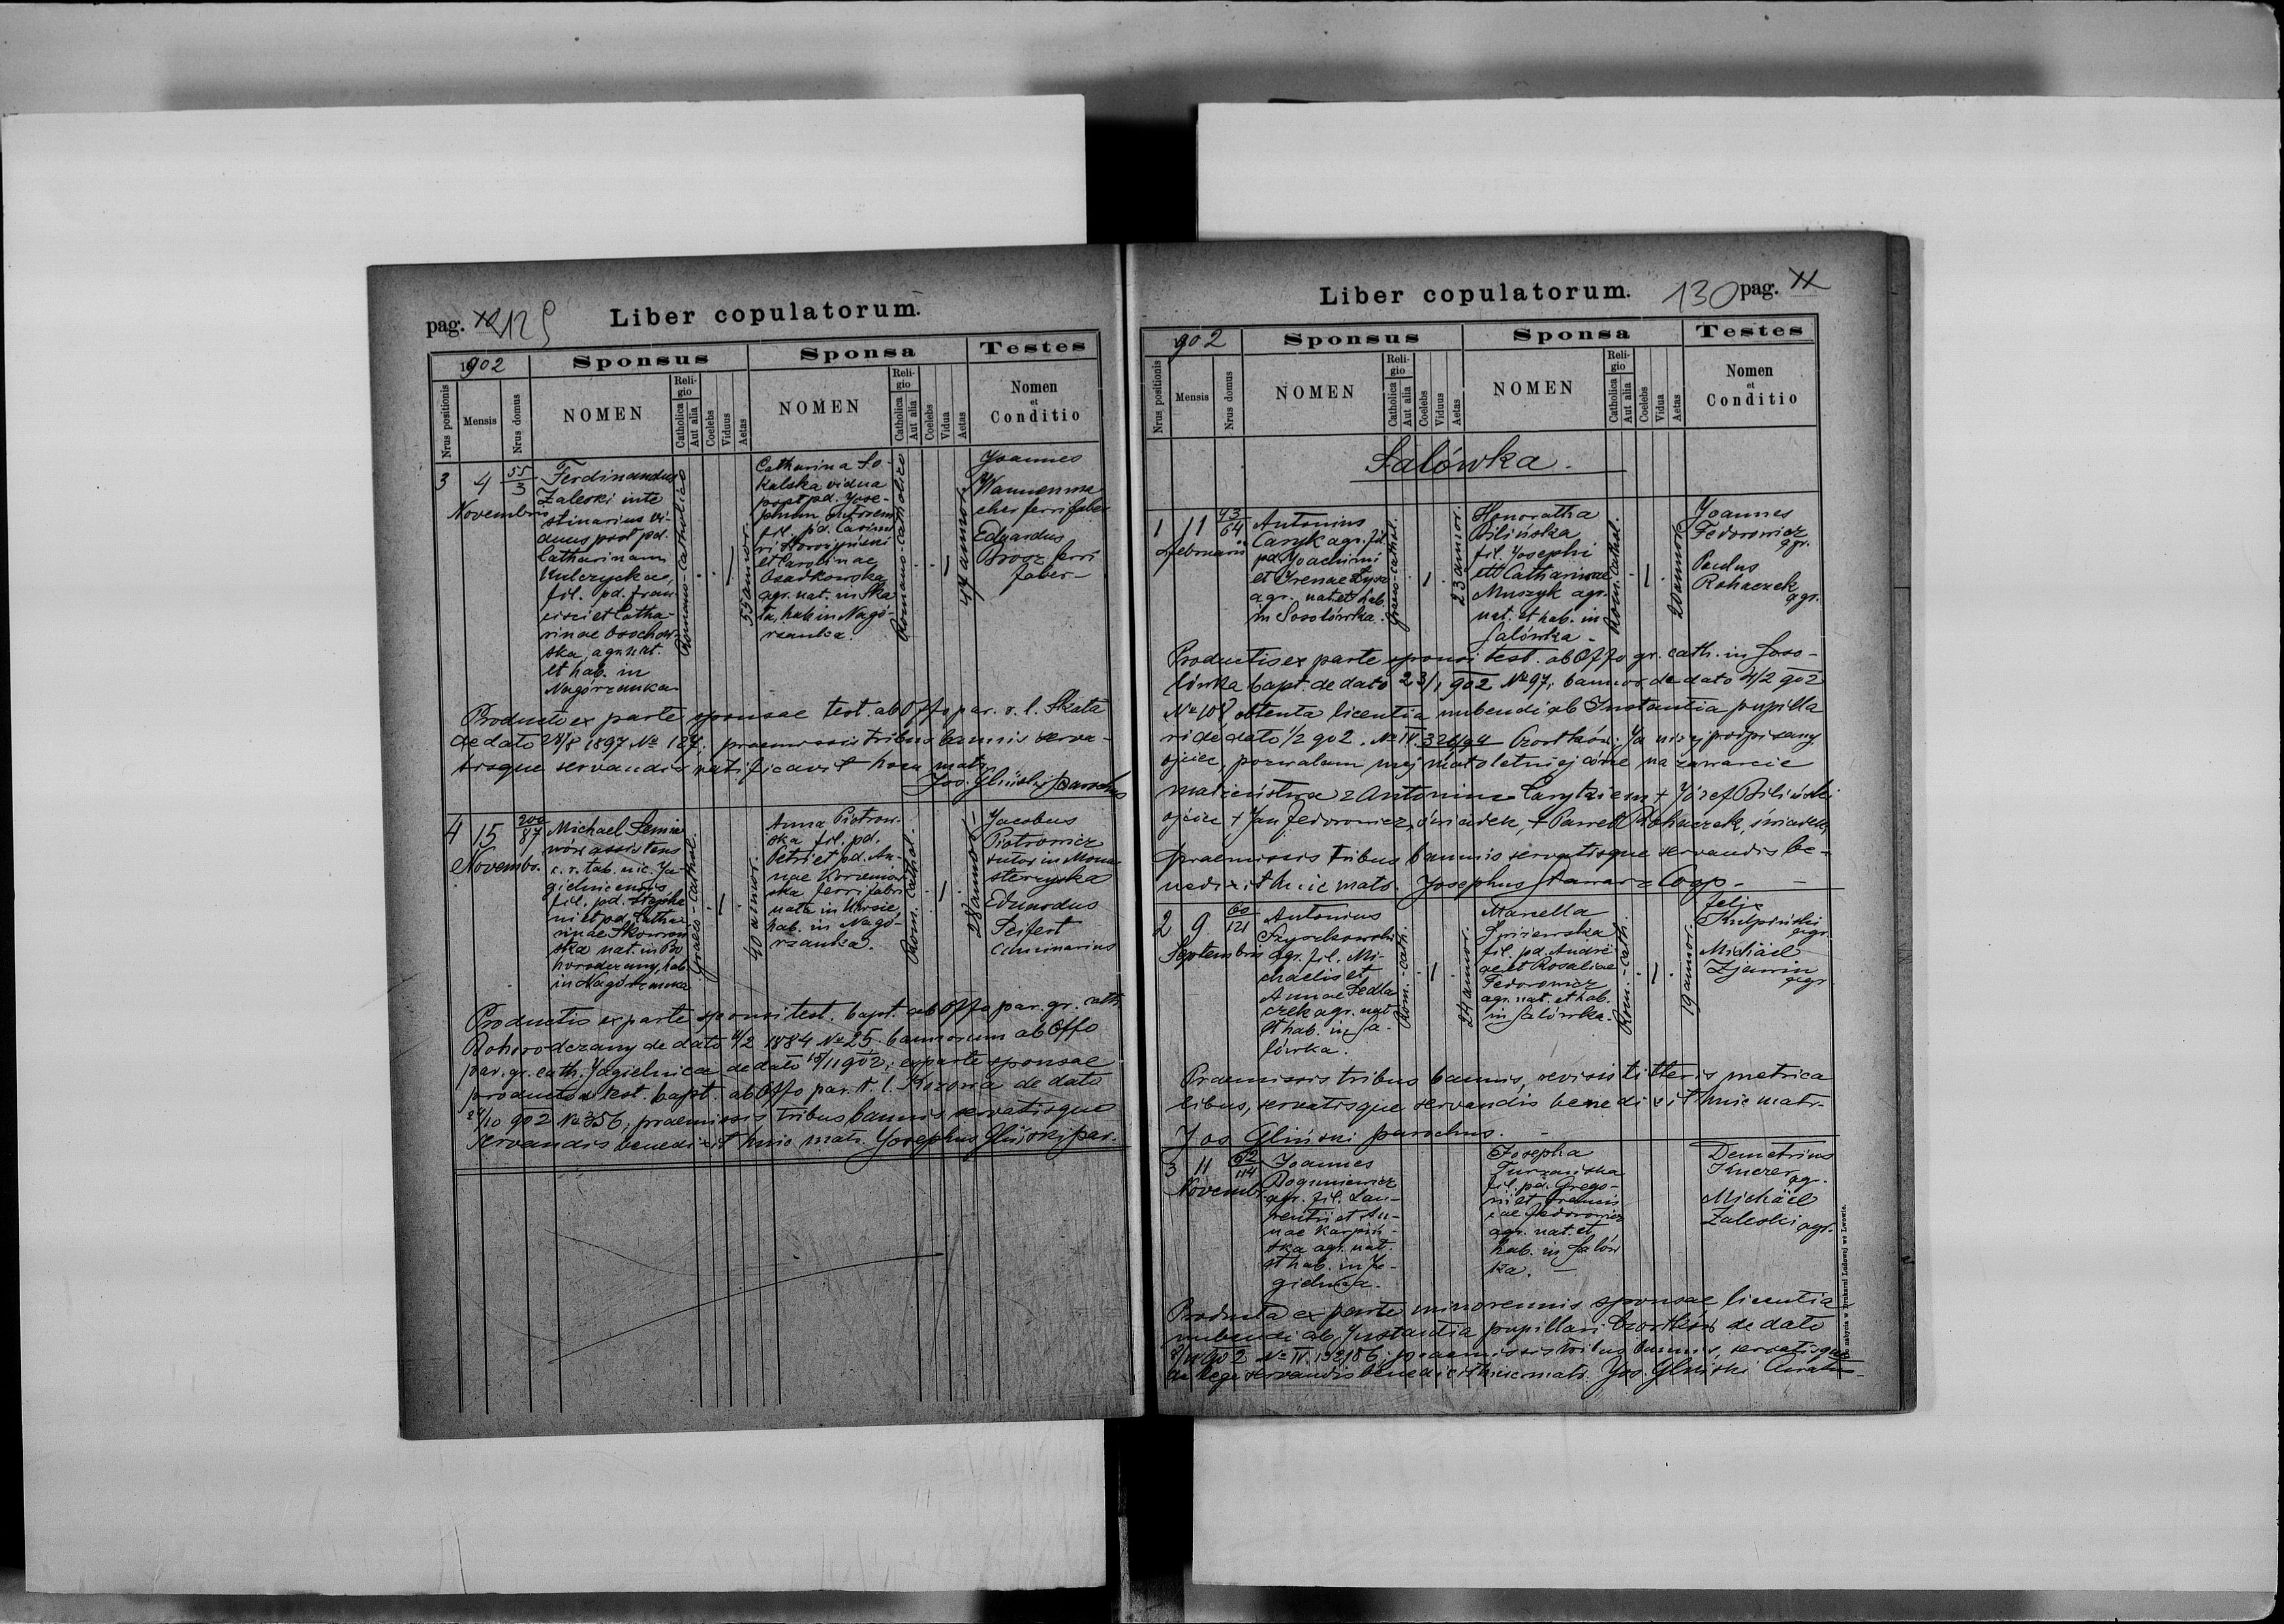 pag. 129
Liber copulatorum.
1902
Sponsus
Sponsa
Testes
Nrus positionis
Mensis
Nrus domus
NOMEN
Religio
Catholica
Aut alia
Coelebs
Viduus
Aetas
NOMEN
Religio
Catholica
Aut alia
Coelebs
Vidua
Aetas
Nomen
et
Conditio
3
4
Novembris
55/3
Ferdinandus
Zaleski inte
stinarius vi-
duus post pd.
Catharinam
Kulczycka,
fil. pd. Fran-
cisci et Catha-
rinae
ska, agr. nat.
et hab. in
Nagórzanka
Romano-Catholica
55 annor.
Catharina So-
kalska vidua
post pd. Jose-
phum
fil. pd. Casimi
ri
et Carolinae
Osadkowska
agr. nat. in Ska
ła, hab. in Nagó-
rzanka.
Romano-Catholica
44 annor.
Joannes
Wannenma
cher ferri faber
Eduardus
Brosz ferri
faber -
Producto ex parte sponsae test. ab Offo par. r. l. Skała
de dato 24/8 1897 № 127, praemissis tribus bannis serva-
tisque servandis ratificavit hocu matr.
Jos. Gliński Parochus
4
15
Novembr.
200/87
Michael Semie
nów assistens
c. r. tab. nic. Ja-
gielnicensis
fil. pd. Stepha
ni et pd. Catha
rinae Skowron
ska nat. in Bo
horodczany, hab.
in Nagórzanka
Graeco-Cathol.
40 annor.
Anna Piotrow-
ska fil. pd.
Petri et pd. An-
nae Korzeniow
ska ferri fabri
nata in
hab. in Nagó-
rzanka.
Rom. Cathol.
28 annor.
Jacobus
Piotrowicz
sutor in Mona-
sterzyska
Edmundus
Seifert
Productis ex parte sponsi test. bapt. ab Offo par. gr. cath.
Bohorodczany de dato 11/2 1884 № 25. bannorum ab Offo
par. gr. cath. Jagielnica de dato 15/11 902; ex parte sponsae
producto test. bapt. ab Offo par. r. l. Kozowa de dato
24/10 902 № 356, praemissis tribus bannis servatisque
servandis benedixit huic matr. Josephus Gliński par.
Liber copulatorum.
130 pag. XX
902
Sponsus
Sponsa
Testes
Nrus positionis
Mensis
Nrus domus
NOMEN
Religio
Catholica
Aut alia
Coelebs
Viduus
Aetas
NOMEN
Religio
Catholica
Aut alia
Coelebs
Vidua
Aetas
Nomen
et
Conditio
Salówka.
1
11
Februarii
43/64
Antonius
Caryk agr. fil.
pd. Joachimi
et Irenae
agr. nat. et hab.
in Sosolówka.
Graeco-Cathol.
23 annor.
Honoratha
Bilińska
fil. Josephi
et Catharinae
Muszyk agr.
nat. et hab. in
Salówka -
Rom. Cathol.
20 annor.
Joannes
Fedorowicz
agr.
Paulus
Rohaczek
agr.
Productis ex parte sponsi test. ab Offo gr. cath. in Soso-
lówka bapt. de dato 23/1 902 № 97, bannor. de dato 4/2 902
№ 108 obtenta licentia nubendi ab Instantia pupilla
ri de dato 1/2 902. № IV. Czortków; Ja niżej podpisany
ojciec, pozwalam mej małoletniej córce na zawarcie
małżeństwa z Antonim Carykiem + Józef Biliński
ojciec + Jan Fedorowicz, świadek, + Paweł Rohaczek, świadek,
praemissis tribus bannis servatisque servandis be-
nedixit huic matr. Josephus Coop. -
2
9
Septembris
60/121
Antonius
Szyszkowski
agr. fil. Mi-
chaelis et
Annae Sedla
czek agr. nat.
et hab. in Sa-
lówka.
Rom.-cath.
24 annor.
Marcella
fil. pd. Andre
ae et Rosaliae
Fedorowicz
agr. nat. et hab.
in Salówka.
Rom.-cath.
19 annor.
Felix
Kulpiński
agr.
Michael
Zjawin
agr.
Praemissis tribus bannis, revisis litteris metrica
libus, servatisque servandis benedixit huic matr.
Jos Gliński parochus. -
3
11
Novembr.
62/114
Joannes
Boguniewicz
agr. fil. Lau-
rentii et An-
nae Karpiń-
ska agr. nat.
et hab. in Ja-
gielnica.
Josepha
Turzańska
fil. pd. Grego-
rii et Francis
cae Fedorowicz
agr. nat. et
hab. in Salów
ka. -
Demetrius
Kuczer
agr.
Michael
Zaleski agr.
Producta ex parte minorennis sponsae licentia
nubendi ab Instantia pupillari Czortków de dato
902 № IV. 152/86; praemissis tribus bannis, servatisque
de lege servandis benedixit huic matr. Jos. Gliński Curatus
nabycia w Drukarni Ludowej we Lwowie.